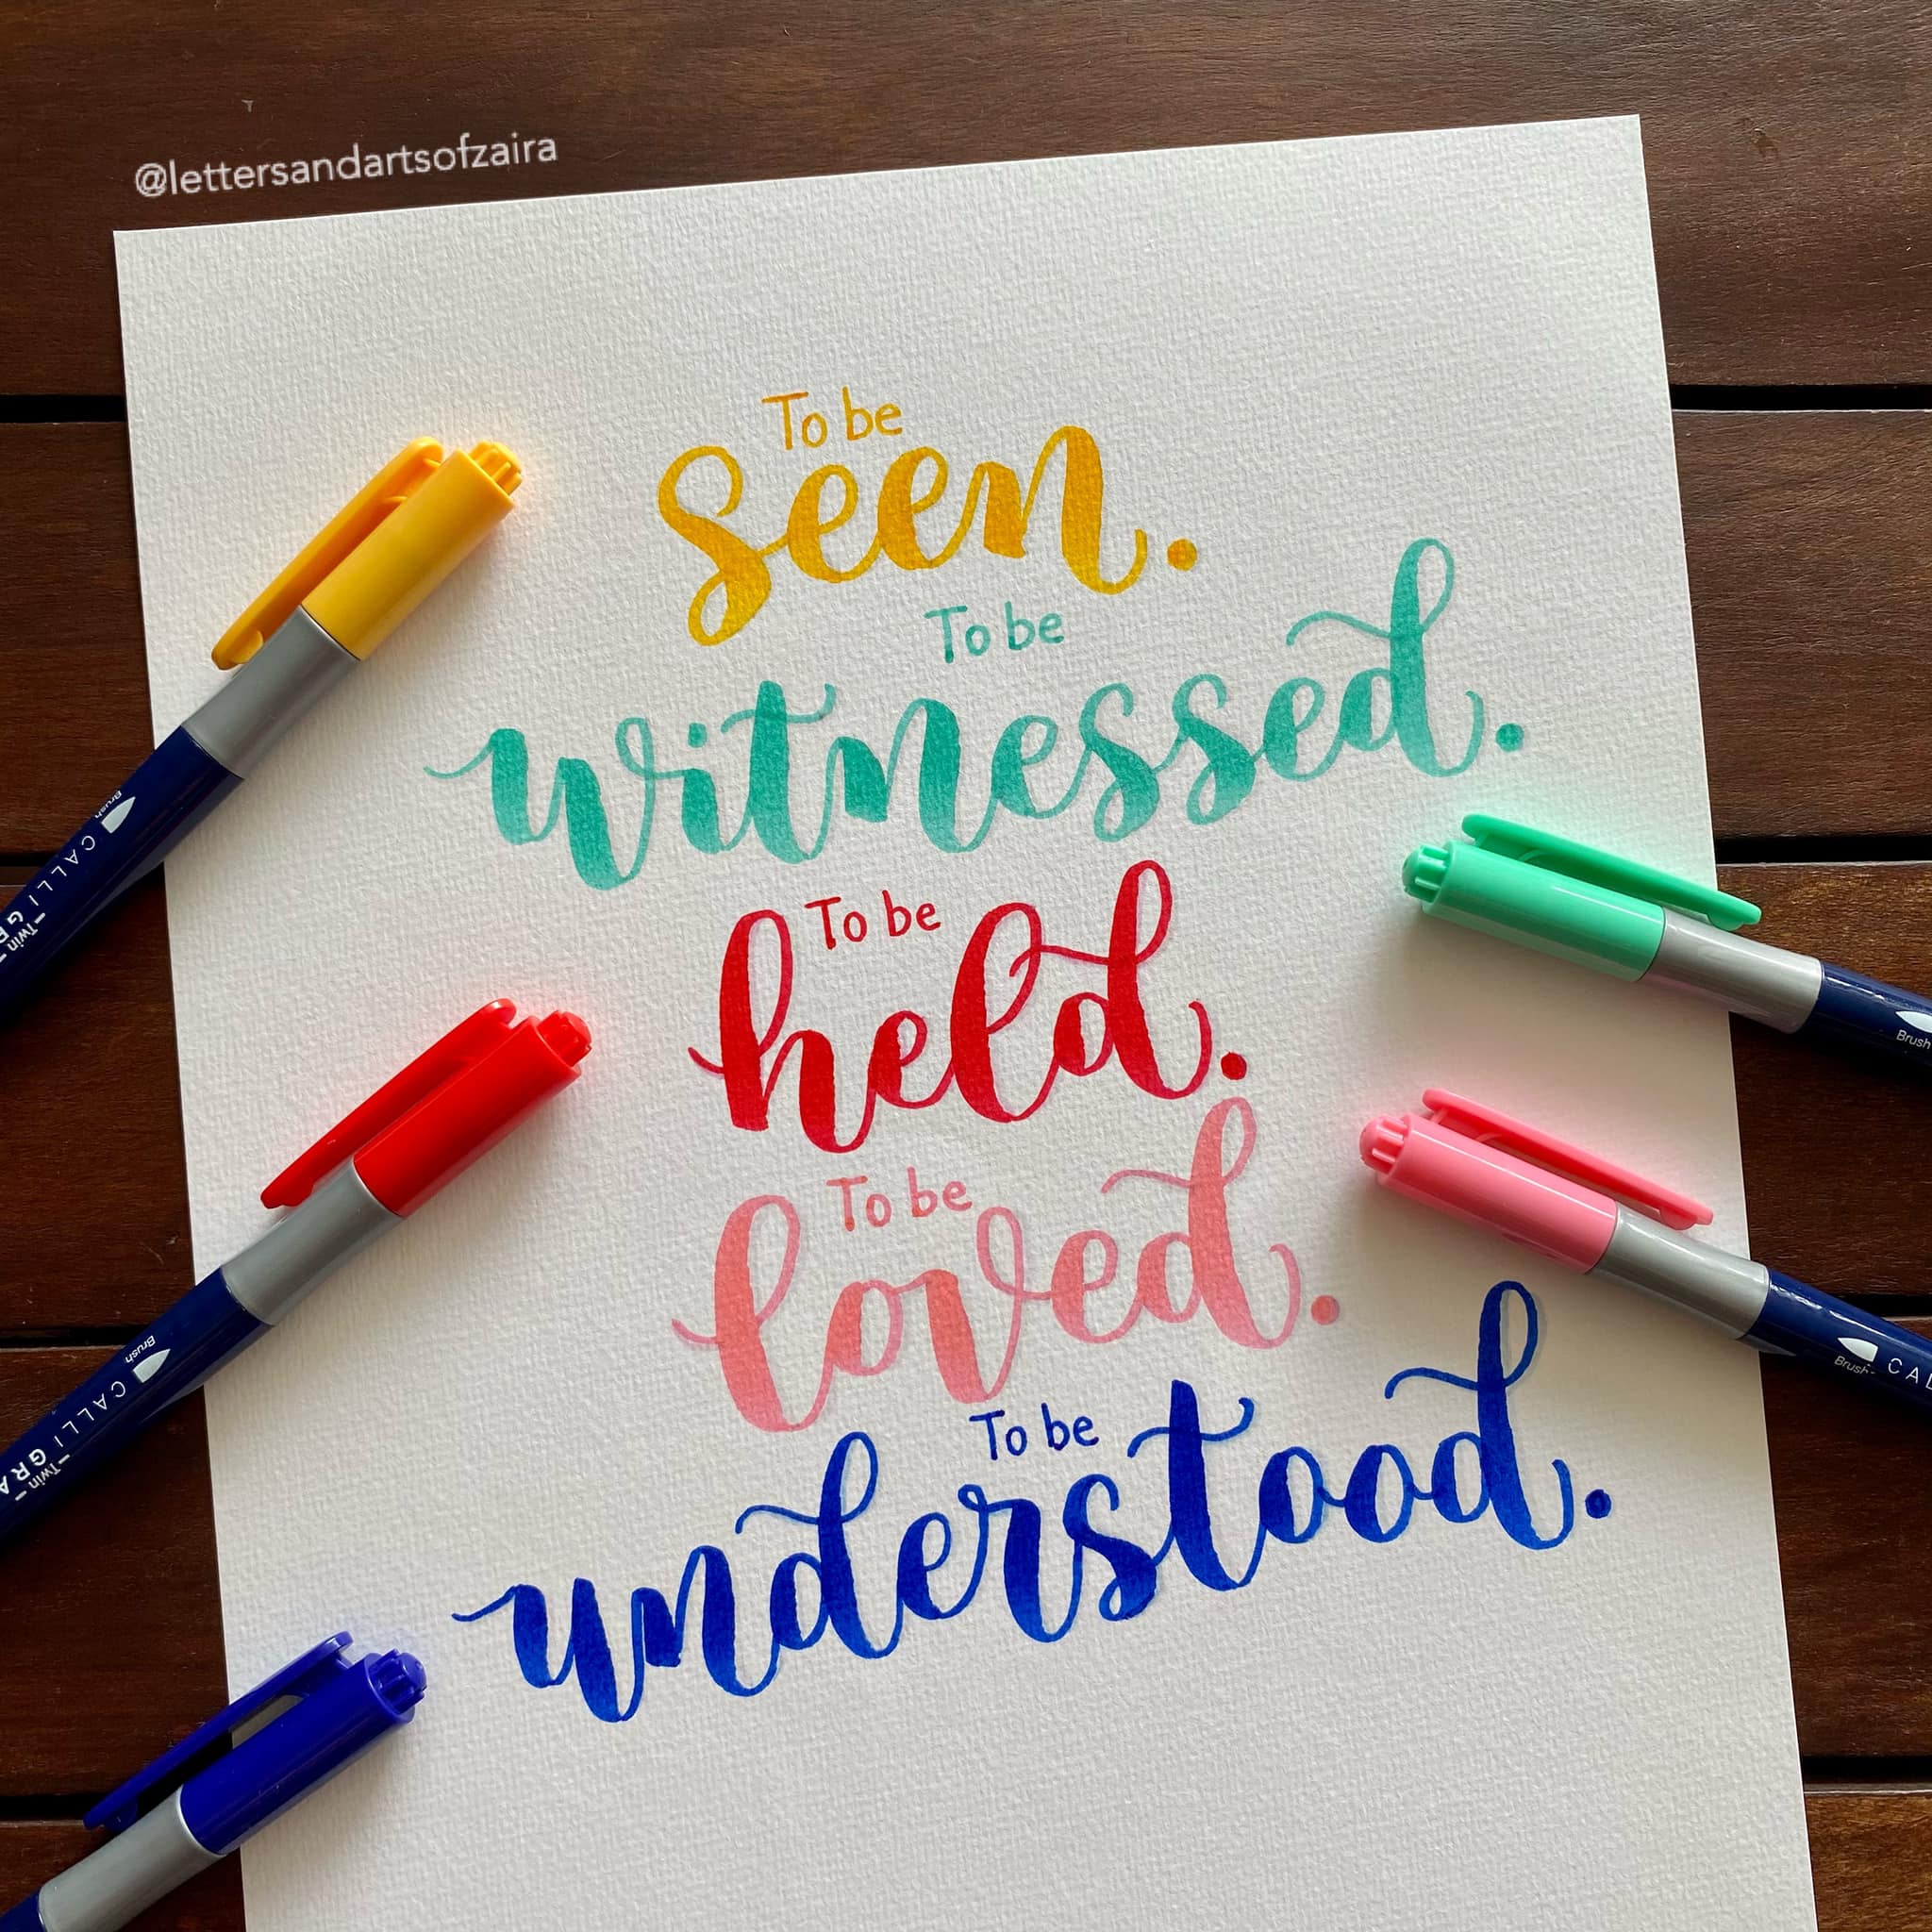 @lettersandartsofzaira
To be
seen.
To be
witnessed.
To be
held.
To be
loved.
To be
understood.
Brush CALLIGR
Twin
Brush CALLIGRA
Twin
Brush
Brush CAL